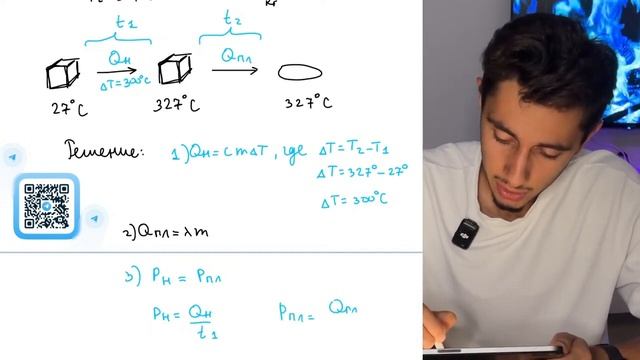 t₁ t₂
Qн Qпл
ΔT=300°C
27°C 327°C 327°C
Решение: 1) Qн = c m ΔT, где ΔT = T₂ - T₁
ΔT = 327° - 27°
ΔT = 300°C
2) Qпл = λm
3) Pн = Pпл
Pн = Qн / t₁ Pпл = Qпл